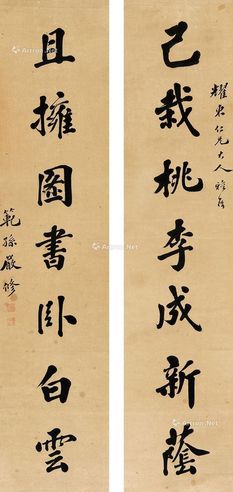 耀東仁兄大人雅屬
已栽桃李成新蔭
且擁圖書臥白雲
範孫嚴修